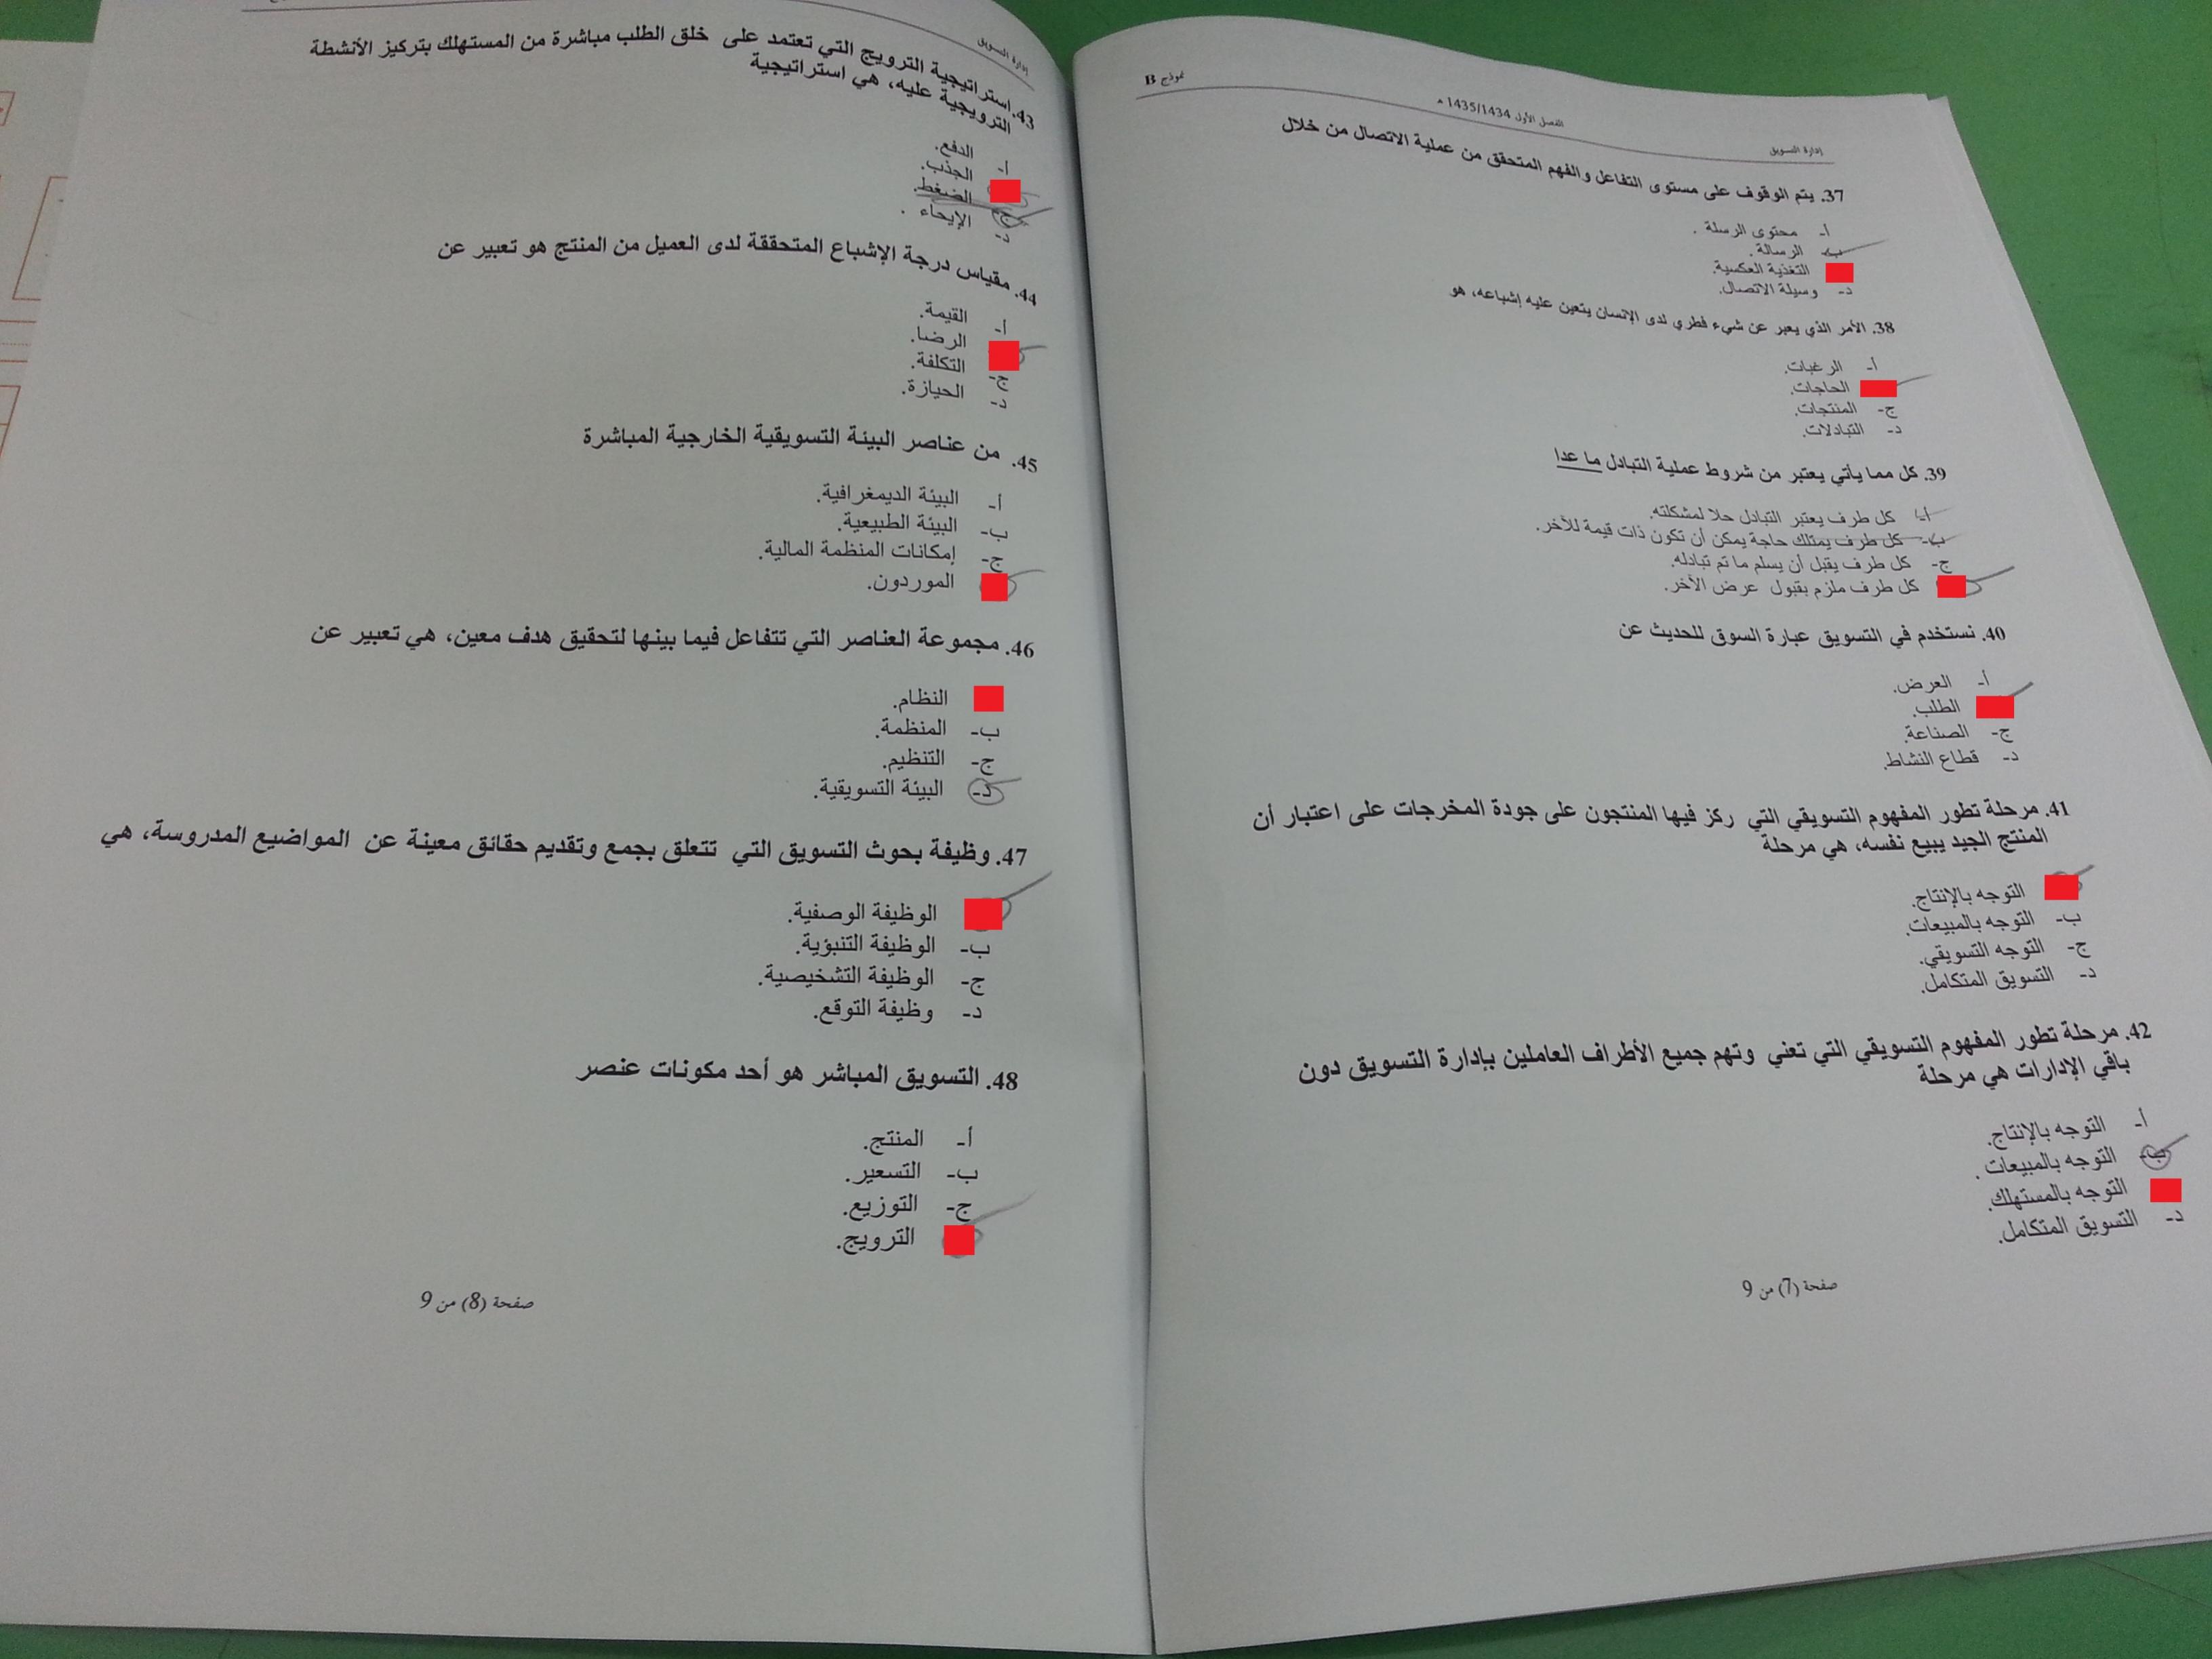 نموذج B
الفصل الأول 1435/1434 هـ
إدارة التسويق
37. يتم الوقوف على مستوى التفاعل والفهم المتحقق من عملية الاتصال من خلال
أ- محتوى الرسلة .
ب- الرسالة .
التغذية العكسية.
د- وسيلة الاتصال.
38. الأمر الذي يعبر عن شيء فطري لدى الإنسان يتعين عليه إشباعه، هو
أ- الرغبات.
الحاجات.
ج- المنتجات.
د- التبادلات.
39. كل مما يأتي يعتبر من شروط عملية التبادل ما عدا
أ- كل طرف يعتبر التبادل حلا لمشكلته.
ب- كل طرف يمتلك حاجة يمكن أن تكون ذات قيمة للآخر.
ج- كل طرف يقبل أن يسلم ما تم تبادله.
كل طرف ملزم بقبول عرض الآخر.
40. نستخدم في التسويق عبارة السوق للحديث عن
أ- العرض.
الطلب.
ج- الصناعة.
د- قطاع النشاط.
41. مرحلة تطور المفهوم التسويقي التي ركز فيها المنتجون على جودة المخرجات على اعتبار أن
المنتج الجيد يبيع نفسه، هي مرحلة
التوجه بالإنتاج.
ب- التوجه بالمبيعات.
ج- التوجه التسويقي.
د- التسويق المتكامل.
42. مرحلة تطور المفهوم التسويقي التي تعني وتهم جميع الأطراف العاملين بإدارة التسويق دون
باقي الإدارات هي مرحلة
أ- التوجه بالإنتاج.
ب- التوجه بالمبيعات .
التوجه بالمستهلك.
د- التسويق المتكامل.
صفحة (7) من 9
إدارة التسويق
43. استراتيجية الترويج التي تعتمد على خلق الطلب مباشرة من المستهلك بتركيز الأنشطة
الترويجية عليه، هي استراتيجية
أ- الدفع.
الجذب.
ج- الضغط.
د- الإيحاء .
44. مقياس درجة الإشباع المتحققة لدى العميل من المنتج هو تعبير عن
أ- القيمة.
الرضا.
ج- التكلفة.
د- الحيازة.
45. من عناصر البيئة التسويقية الخارجية المباشرة
أ- البيئة الديمغرافية.
ب- البيئة الطبيعية.
ج- إمكانات المنظمة المالية.
الموردون.
46. مجموعة العناصر التي تتفاعل فيما بينها لتحقيق هدف معين، هي تعبير عن
النظام.
ب- المنظمة.
ج- التنظيم.
د- البيئة التسويقية.
47. وظيفة بحوث التسويق التي تتعلق بجمع وتقديم حقائق معينة عن المواضيع المدروسة، هي
الوظيفة الوصفية.
ب- الوظيفة التنبؤية.
ج- الوظيفة التشخيصية.
د- وظيفة التوقع.
48. التسويق المباشر هو أحد مكونات عنصر
أ- المنتج.
ب- التسعير.
ج- التوزيع.
الترويج.
صفحة (8) من 9